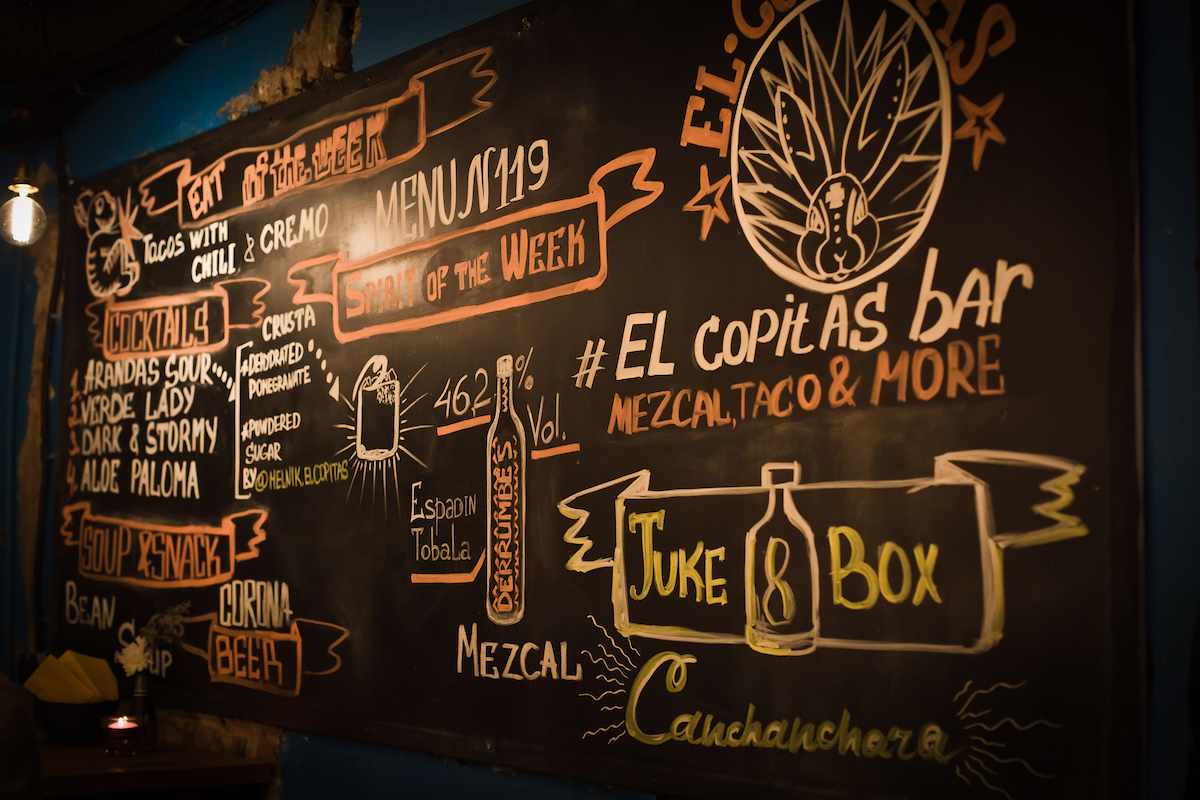 EAT of the WEEK
TACOS WITH
CHILI & CREMO
MENU N119
SPIRIT OF THE WEEK
COCKTAILS
1. ARANDAS SOUR
2. VERDE LADY
3. DARK & STORMY
4. ALOE PALOMA
CRUSTA
DEHYDRATED
POMEGRANATE
POWDERED
SUGAR
BY @HELNIK.ELCOPITAS
SOUP & SNACK
BEAN
CORONA
BEER
46,2 %
Vol.
Espadin
Tobala
DERRUMBE'S
MEZCAL
EL
# EL COPitAS bar
MEZCAL, TACO & MORE
JUKE 8 BOX
Canchanchara